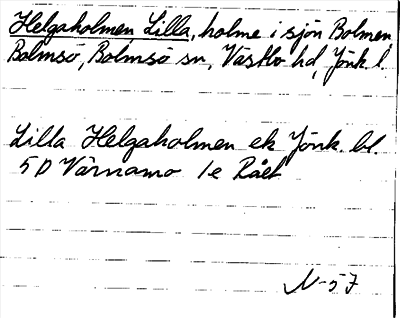 Helgaholmen, Lilla, holme i sjön Bolmen
Bolmsö, Bolmsö sn, Västbo hd, Jönk. l.
Lilla Helgaholmen ek Jönk. bl.
5 D Värnamo 1e Rået
N-57